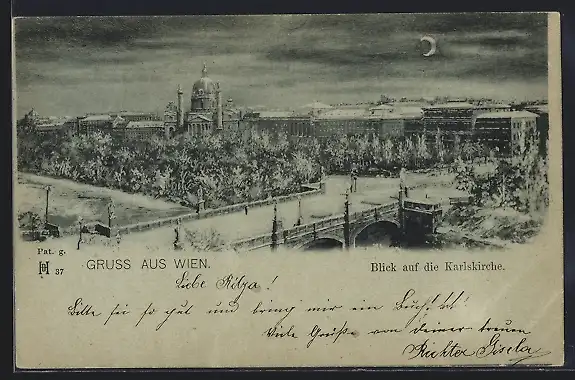 Pat. g.
37
GRUSS AUS WIEN.
Blick auf die Karlskirche.
Liebe Rózsa!
Bitte sei so gut und bring mir ein Buch! st!
Viele Grüße von deiner treuen
Richter Gisela